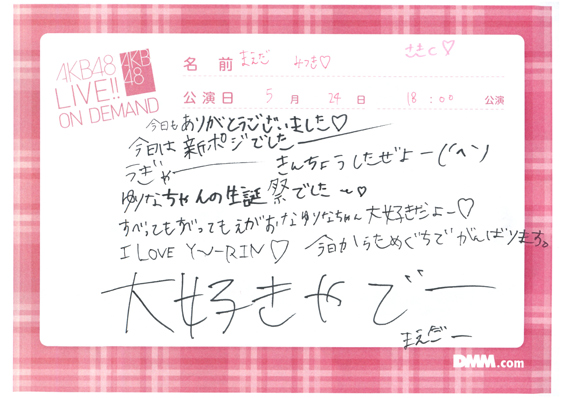 AKB48
LIVE!!
ON DEMAND
AKB
48
名 前 まえだ みつき♡
公演日 5 月 24 日 18:00 公演
今日も ありがとうございました♡
今日は 新ポジでしたー
うぎゃー きんちょうしたぜよー(^ヘ^)
ゆりなちゃんの生誕 祭でした〜♡
すべってもすがってもえがおなゆりなちゃん大好きだよー♡
I LOVE Y〜RIN♡ 今日からためぐちでがんばります。
大好きやでー
まえだー
DMM.com